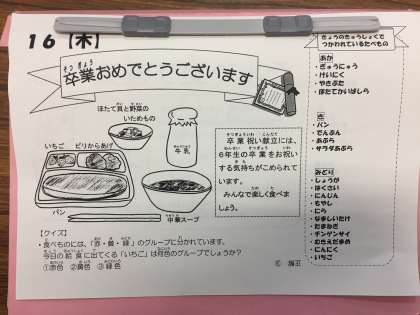 16【木】
卒業おめでとうございます
ほたて貝と野菜の
いためもの
いちご ピリからあげ
牛乳
パン
中華スープ
卒業祝い献立には、
6年生の卒業をお祝い
する気持ちがこめられて
います。
みんなで楽しく食べま
しょう。
【クイズ】
・食べものには、「赤・黄・緑」のグループに分かれています。
今日の給食に出てくる「いちご」は何色のグループでしょうか？
①赤色 ②黄色 ③緑色
きょうのきゅうしょくで
つかわれているたべもの
あか
・ぎゅうにゅう
・けいにく
・やきぶた
・ほたてかいばしら
き
・パン
・でんぷん
・あぶら
・サラダあぶら
みどり
・しょうが
・はくさい
・にんじん
・もやし
・にら
・なましいたけ
・たまねぎ
・チンゲンサイ
・ねぎ
・にんにく
・いちご